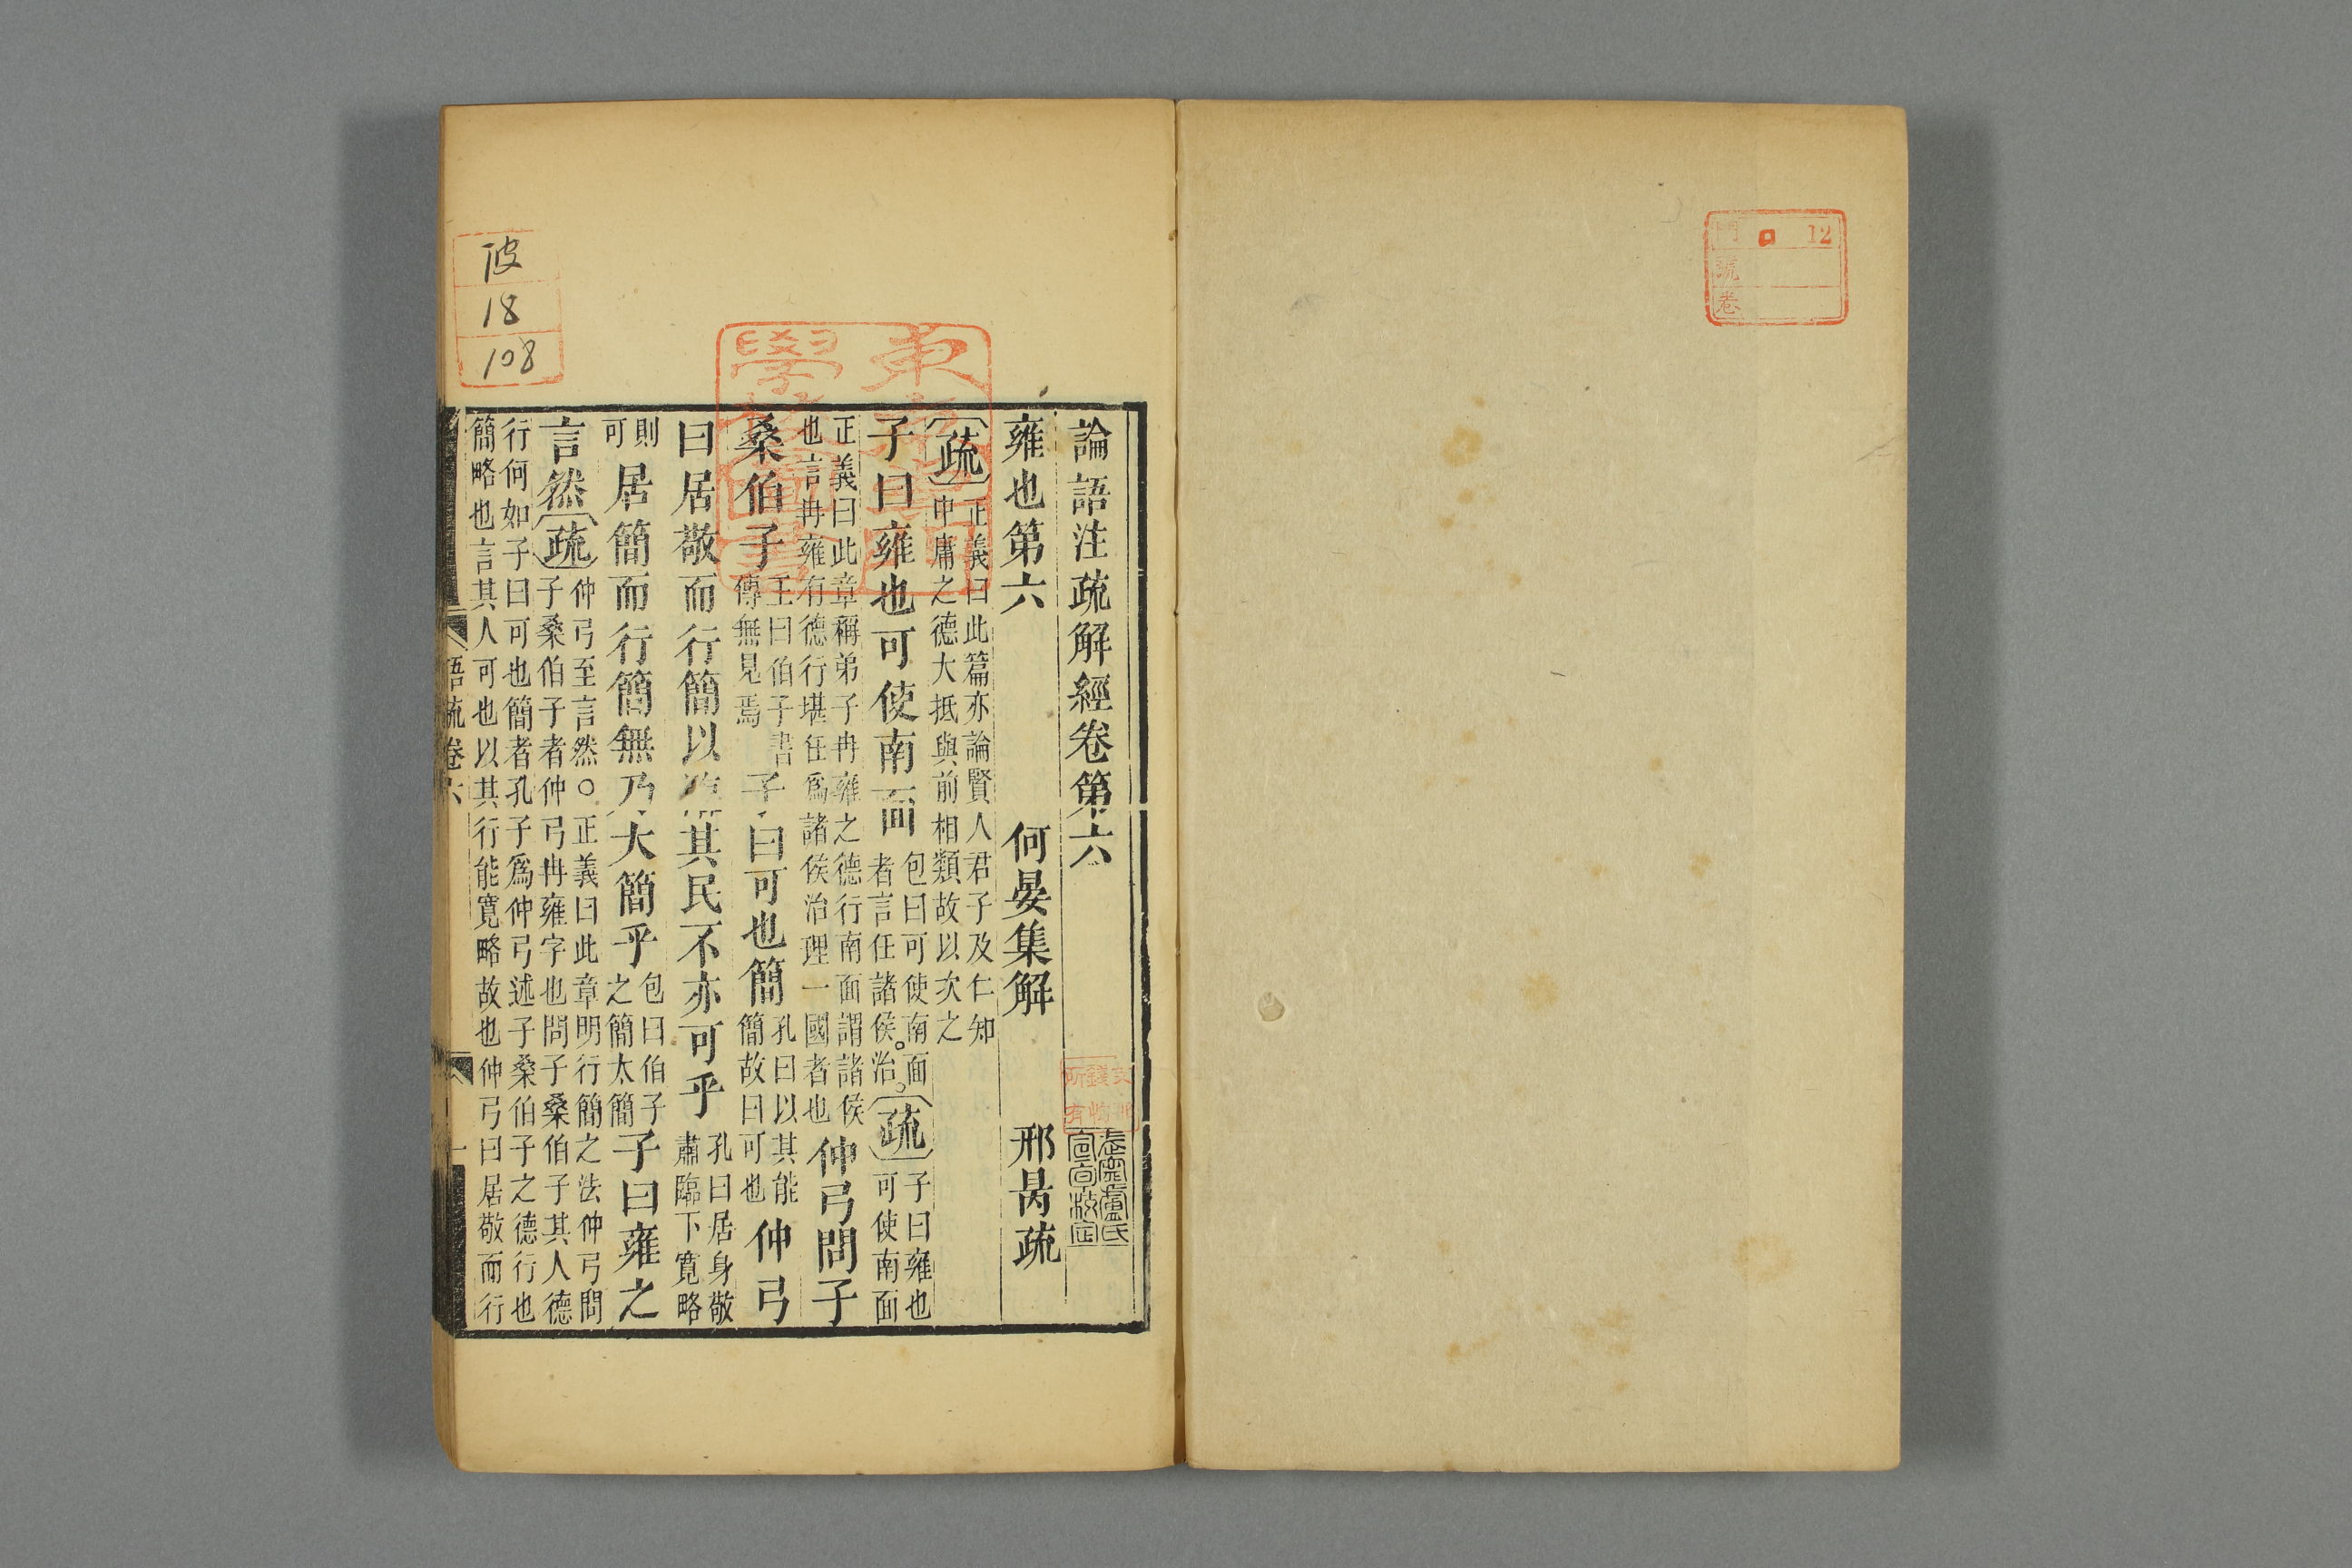 門 ロ 12
號
卷
論語注疏解經卷第六
武寧盧氏
宣旬校定
雍也第六 何晏集解 邢昺疏
疏 正義曰此篇亦論賢人君子及仁知
中庸之德大抵與前相類故以次之
子曰雍也可使南面 包曰可使南面
者言任諸侯治。 疏 子曰雍也
可使南面
正義曰此章稱弟子冉雍之德行南面謂諸侯
也言冉雍有德行堪任爲諸侯治理一國者也 仲弓問子
桑伯子 王曰伯子書
傳無見焉 子曰可也簡 孔曰以其能
簡故曰可也 仲弓
曰居敬而行簡以臨其民不亦可乎 孔曰居身敬
肅臨下寬略
則
可 居簡而行簡無乃大簡乎 包曰伯子
之簡太簡 子曰雍之
言然 疏 仲弓至言然○正義曰此章明行簡之法仲弓問
子桑伯子者仲弓冉雍字也問子桑伯子其人德
行何如子曰可也簡者孔子爲仲弓述子桑伯子之德行也
簡略也言其人可也以其行能寬略故也仲弓曰居敬而行
語疏卷六 一
18
108